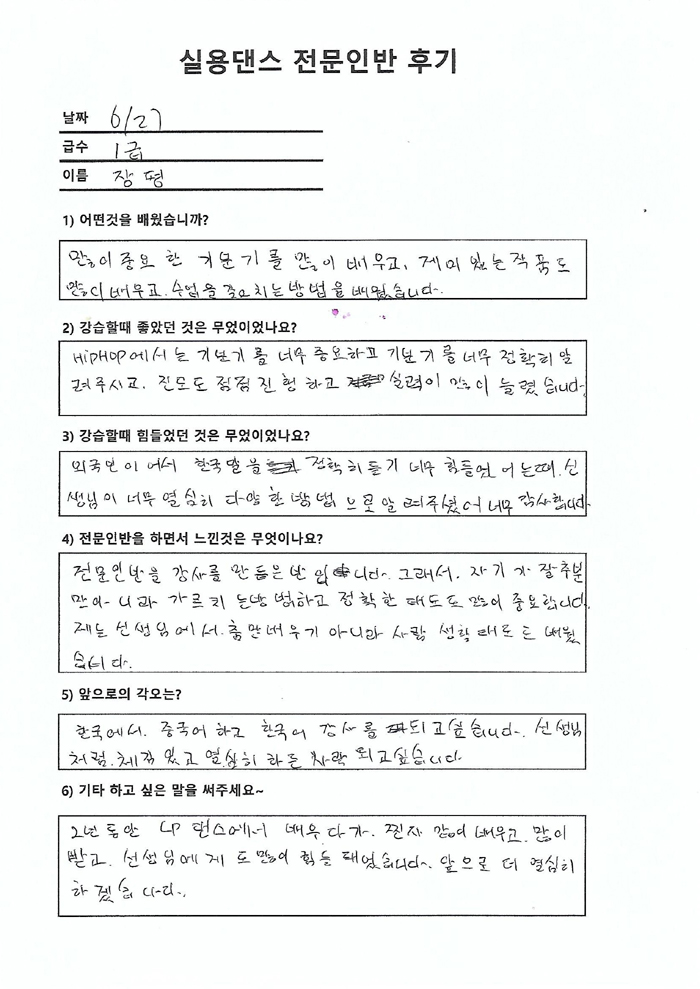 실용댄스 전문인반 후기
날짜 6/27
급수 1급
이름 장 평
1) 어떤것을 배웠습니까?
많이 중요 한 기본기를 많이 배우고, 제미 있는 작품도
많이 배우고. 수업을 하는 방법을 배웠습니다.
2) 강습할때 좋았던 것은 무었이었나요?
HIPHOP에서는 기본기를 너무 중요하고 기본기를 너무 정확히 알
려주시고. 진도도 점점 진행 하고 실력이 많이 늘렸 습니다.
3) 강습할때 힘들었던 것은 무었이었나요?
외국인이어서 한국말을 정확히 듣기 너무 힘들었 어는때. 선
생님이 너무 열심히 다양 한 방법 으로 알 려주셨어 너무 감사합니다.
4) 전문인반을 하면서 느낀것은 무엇이나요?
전문인반을 강사를 만 듬은 반 입니다. 그래서. 자기 가 잘추분
만아니라 가르키 는방법하고 정확한 태도도 많이 중요합니다.
제는 선생님에서. 춤만배우기 아니라 사람 생활 태도 도 배웠
습니다.
5) 앞으로의 각오는?
한국에서. 중국어 하고 한국어 강사를 되고싶습니다. 선생님
처럼. 책임 있고 열심히 하는 사람 되고싶습니다
6) 기타 하고 싶은 말을 써주세요~
2년 동안 댄스에서 배우다가. 찐자 많이 배우고. 많이
받고. 선생님에게 도 많이 힘들 때었습니다. 앞으로 더 열심히
하겠습 니다.